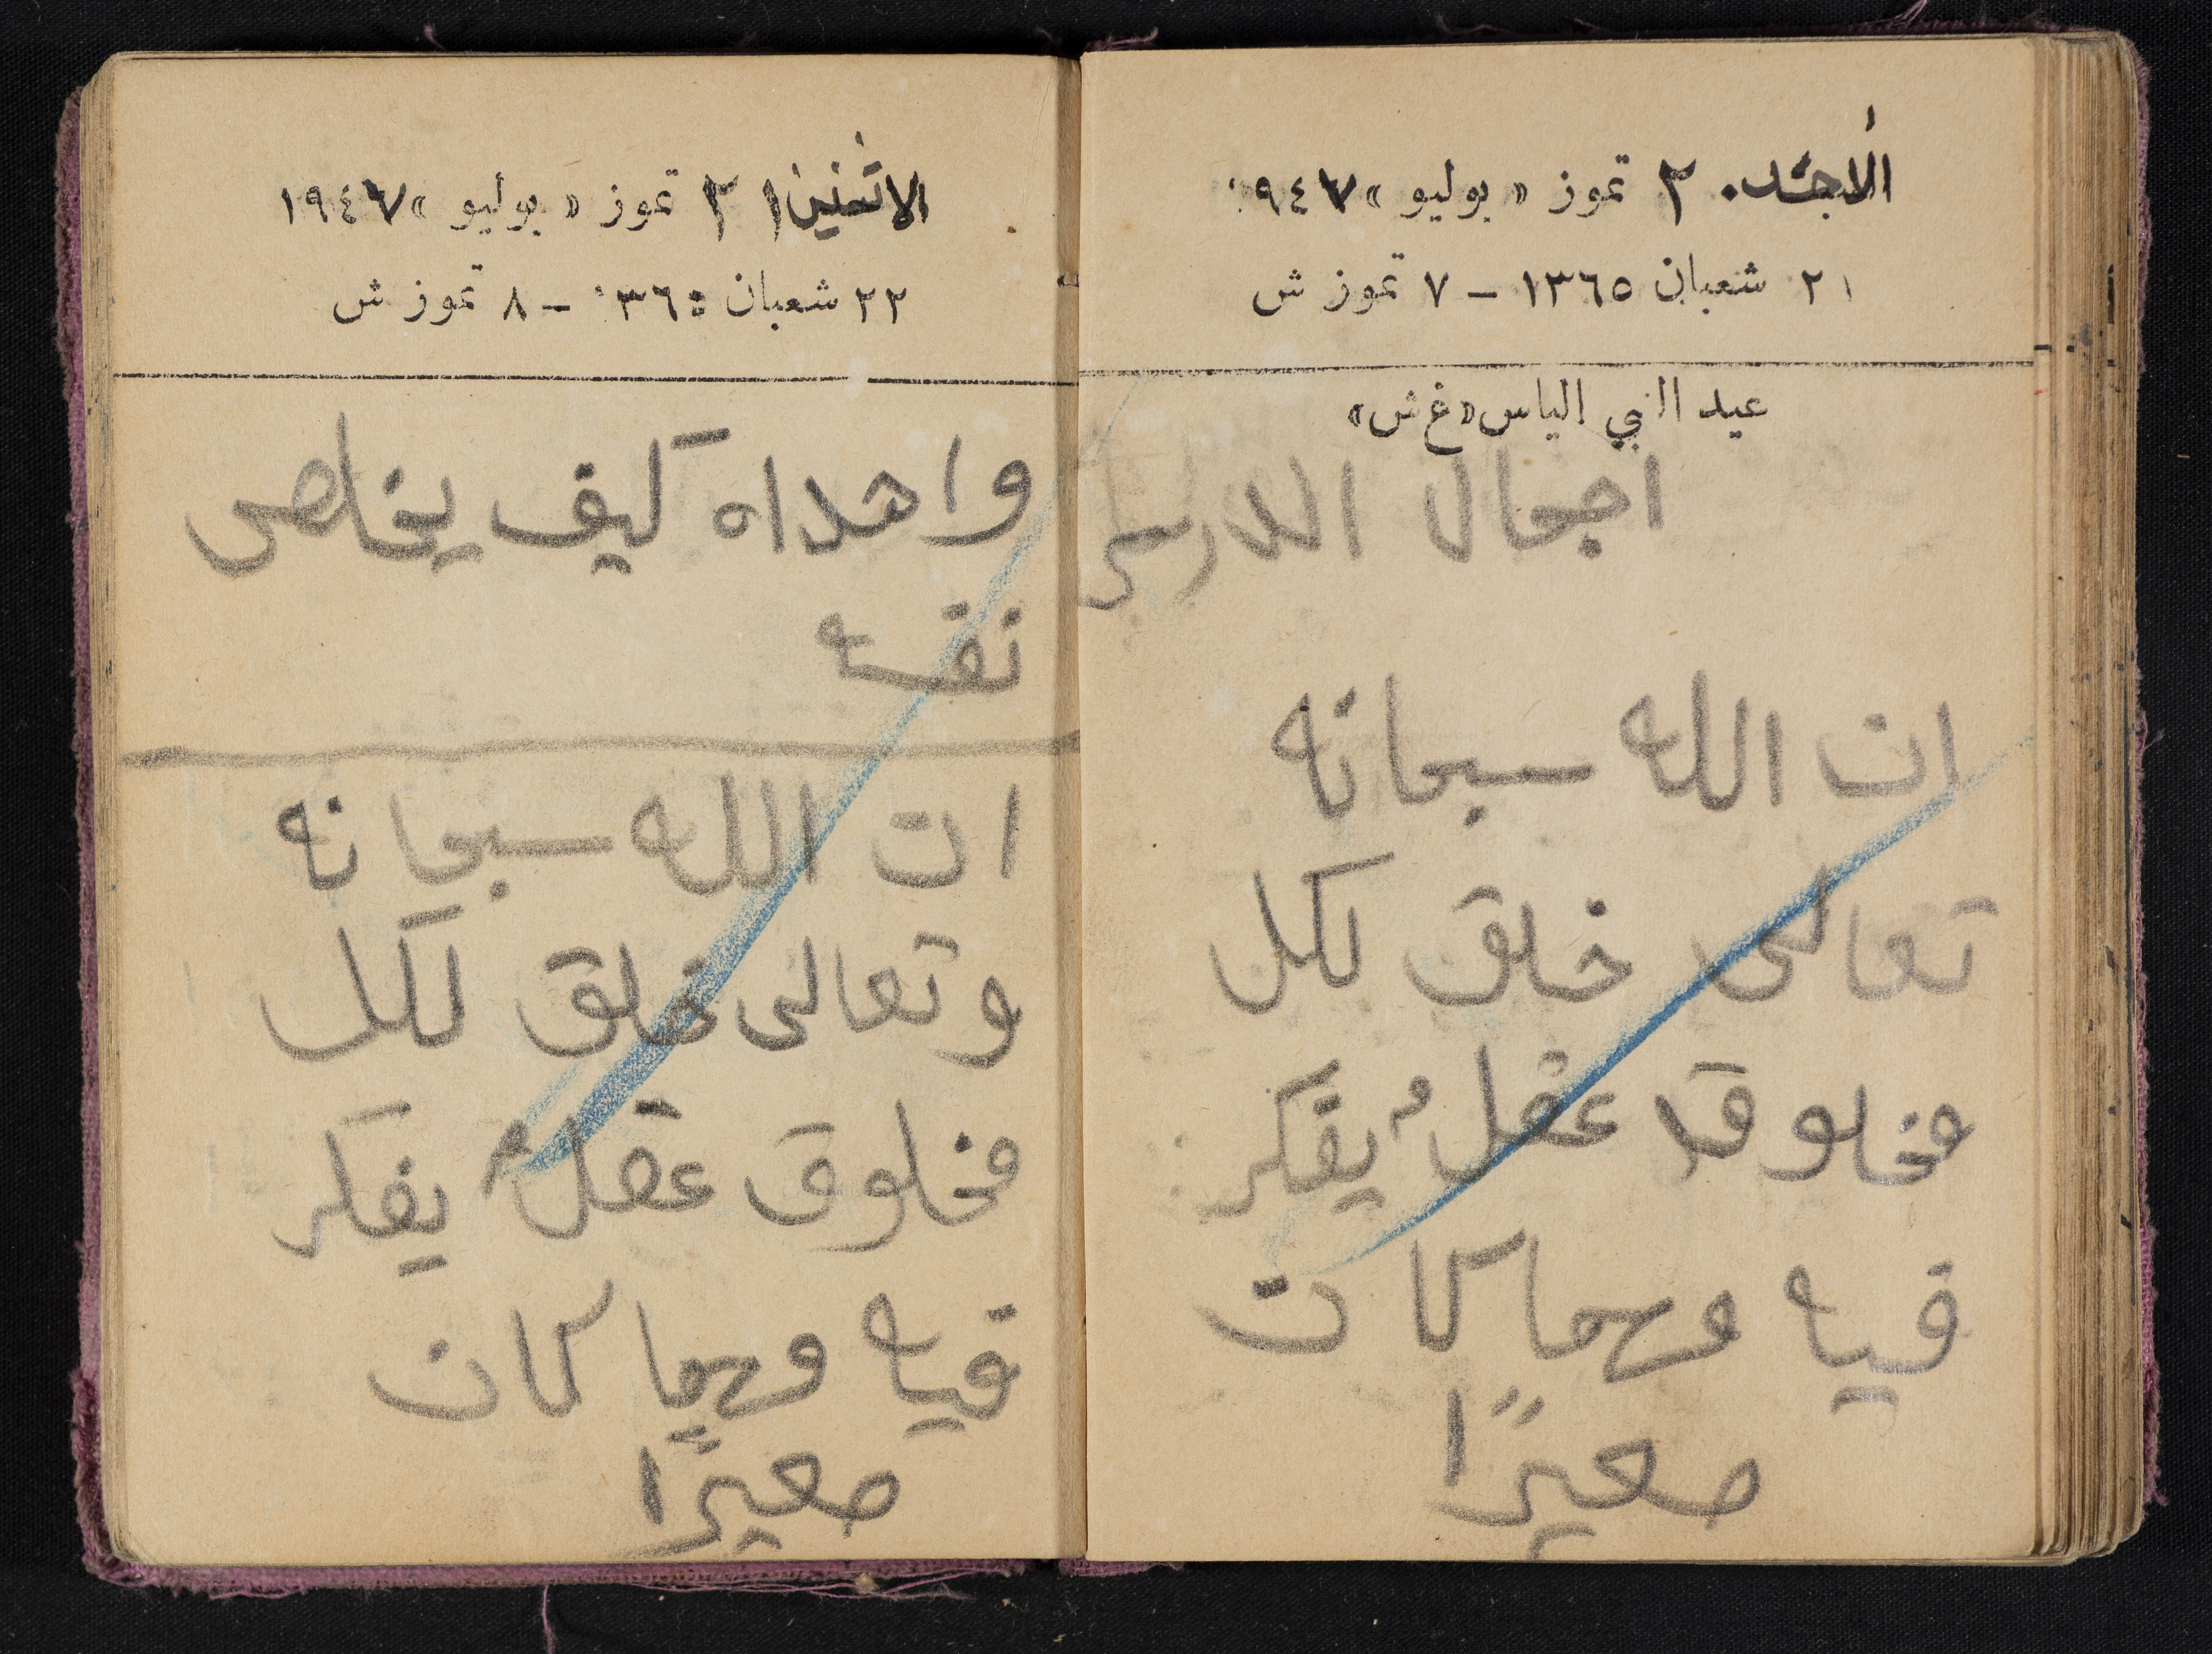 الاحد ٢٠ تموز « يوليو » ١٩٤٧
٢١ شعبان ١٣٦٥ – ٧ تموز ش
عيد النبي الياس « غ ش »
اجمال الدرس
ان الله سبحانه
تعالى خلق لكل
مخلوق عقل يفكر
فيه ومهما كان
صغيرًا
الاثنين ٢١ تموز « يوليو » ١٩٤٧
٢٢ شعبان ١٣٦٥ – ٨ تموز ش
واهداه كيف يخلص
نفسه
ان الله سبحانه
وتعالى خلق لكل
مخلوق عقل يفكر
فيه ومهما كان
صغيرًا